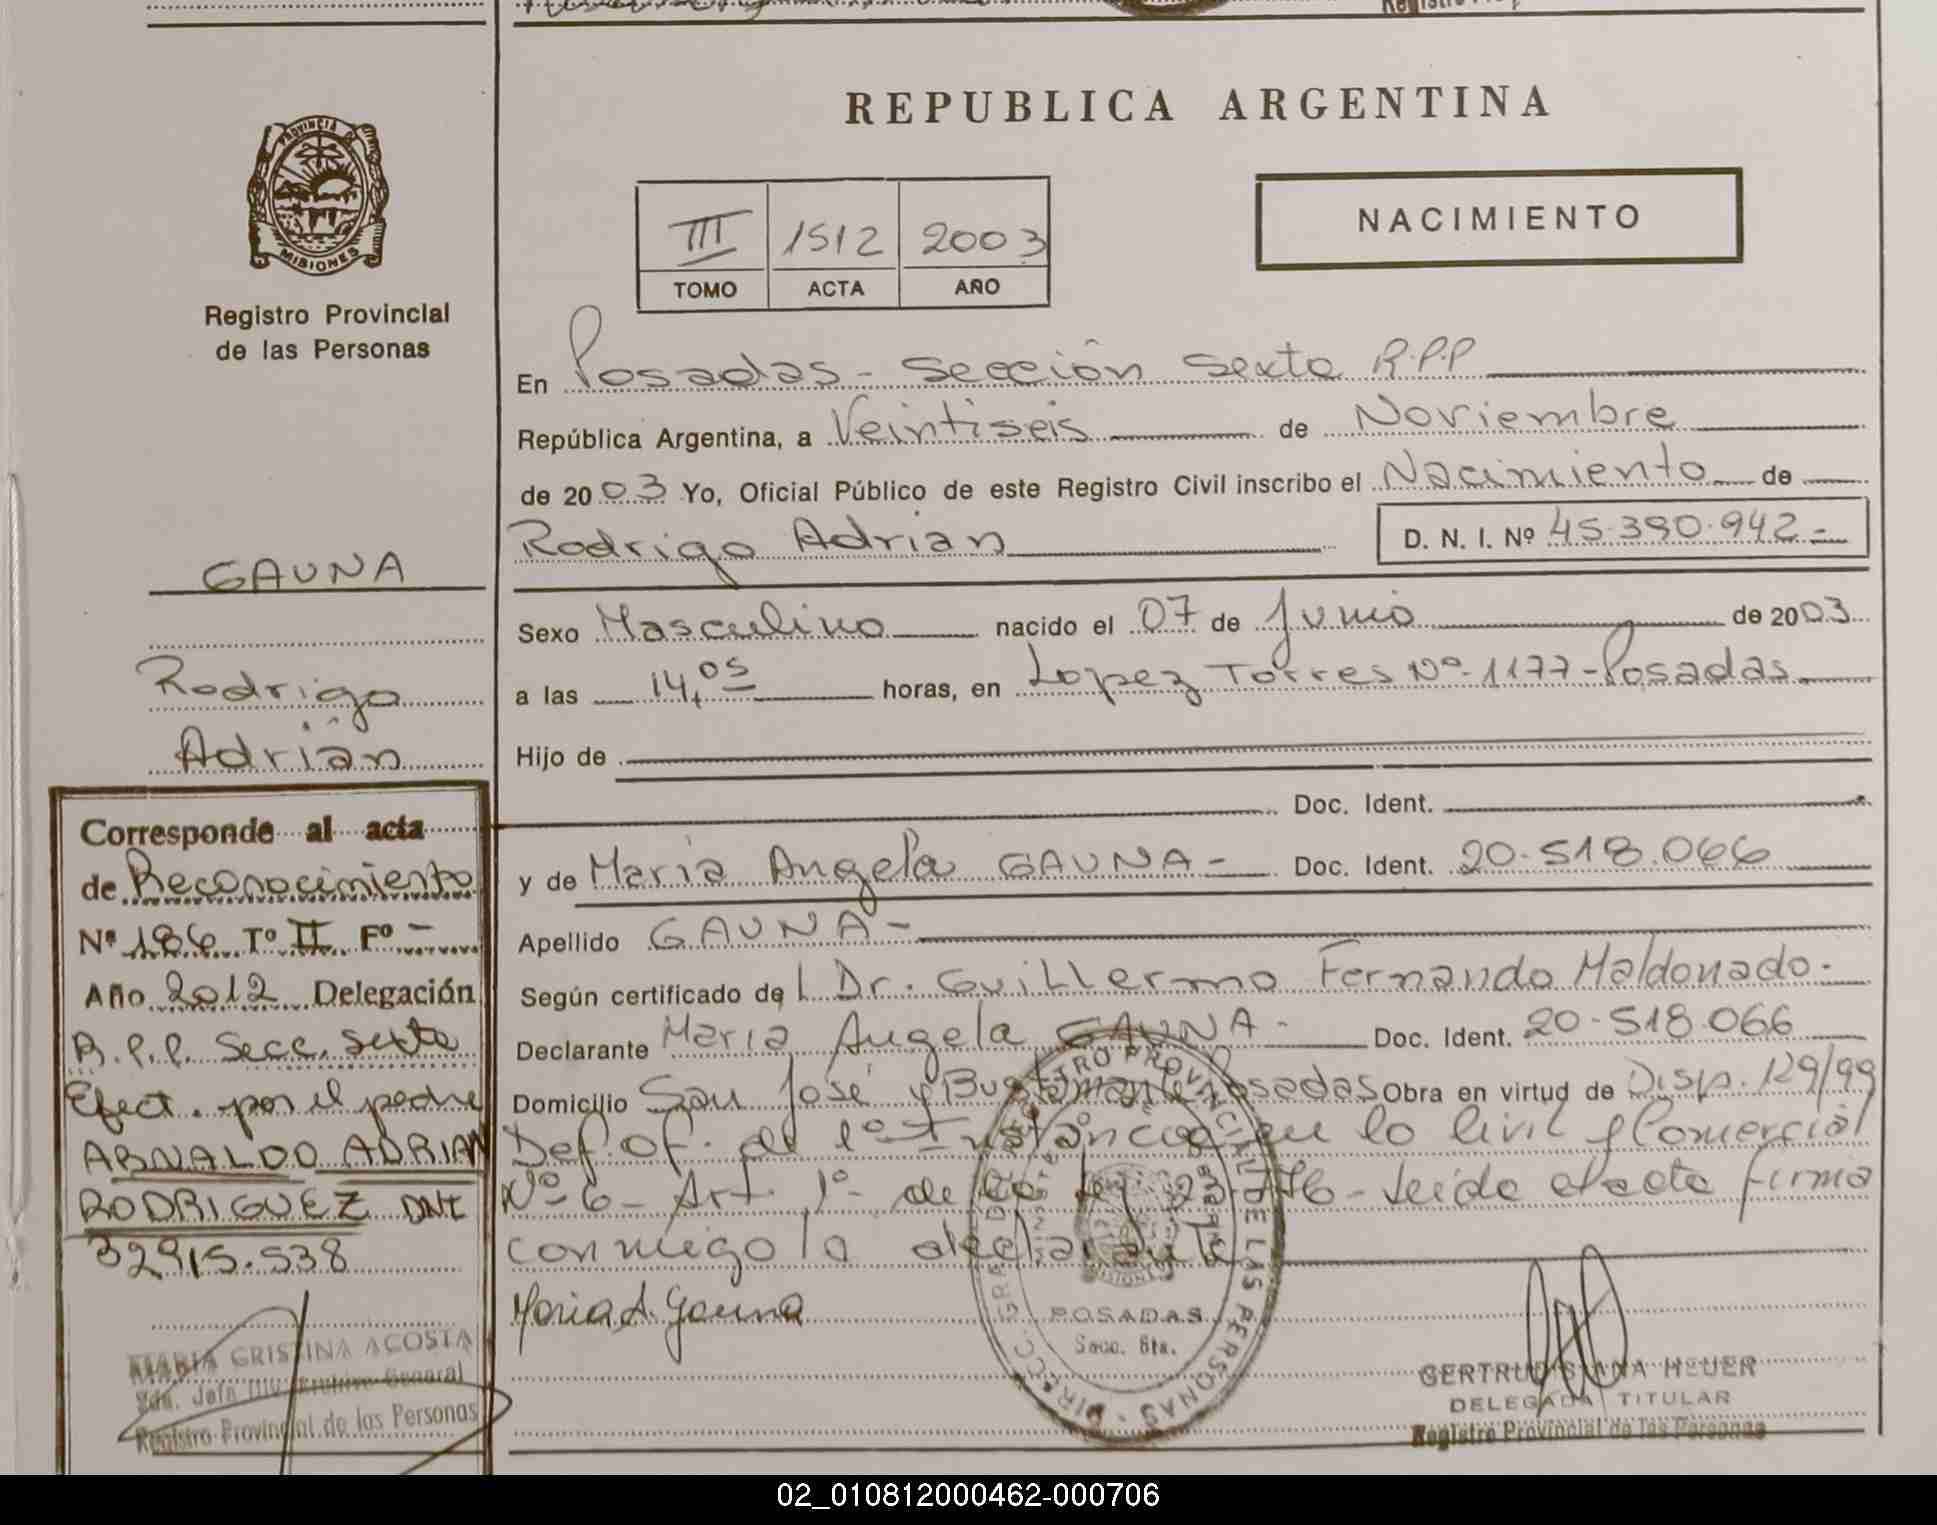 REPUBLICA ARGENTINA
PROVINCIA DE
MISIONES
Registro Provincial
de las Personas
III 1512 2003
TOMO ACTA AÑO
NACIMIENTO
En Posadas - Sección Sexta R.P.P
República Argentina, a Veintiseis de Noviembre
de 2003 Yo, Oficial Público de este Registro Civil inscribo el Nacimiento de
Rodrigo Adrian D. N. I. Nº 45.390.942.-
Sexo Masculino nacido el 07 de Junio de 2003
a las 14,05 horas, en Lopez Torres Nº 1177 - Posadas.
Hijo de
Doc. Ident.
y de Maria Angela GAUNA - Doc. Ident. 20.518.066
Apellido GAUNA -
Según certificado del Dr. Guillermo Fernando Maldonado.
Declarante Maria Angela GAUNA - Doc. Ident. 20-518.066
Domicilio San José y Bustamante Posadas Obra en virtud de Disp. 129/99
Def. Of. de 1º Instancia en lo Civil y Comercial
Nº 6 - Art. 1º de la Ley - Leida el acta firma
conmigo la declarante
Maria A. Gauna
GAUNA
Rodrigo
Adrián
Corresponde al acta
de Reconocimiento
Nº 186 Tº II Fº -
Año 2012 Delegación
R.P.P. Secc. Sexta
Efect. por el padre
ARNALDO ADRIAN
RODRIGUEZ DNI
32915.538
MARIA CRISTINA ACOSTA
Archivo General
Registro Provincial de las Personas
REGISTRO PROVINCIAL DE LAS PERSONAS
MISIONES
POSADAS
Secc. 6ta.
GERTRUDIS ANA HEUER
DELEGADA TITULAR
Registro Provincial de las Personas
02_010812000462-000706